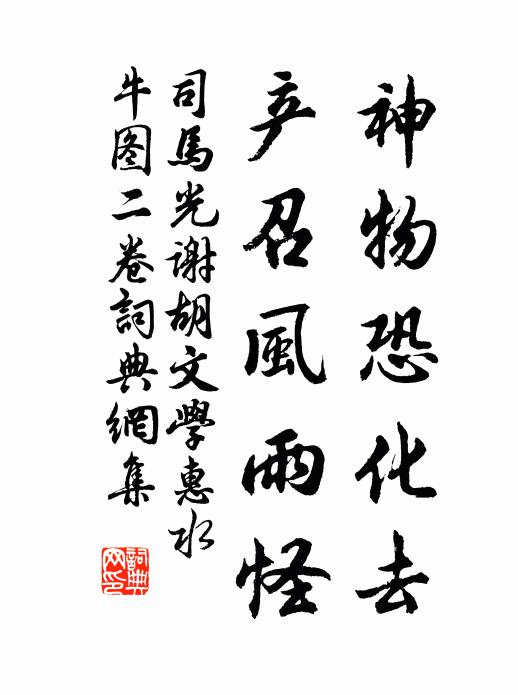 神物恐化去
卒召風雨怪
司馬光謝胡文學惠水
牛图二卷詞典網集
詞典网印